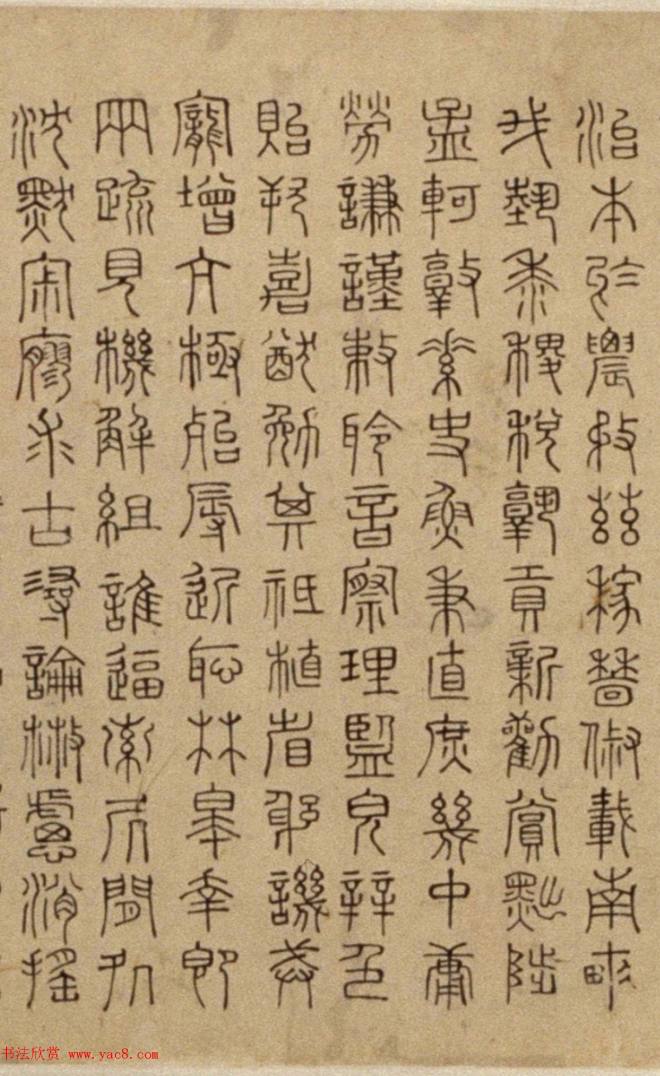 治本於農務茲稼穡俶載南畝
我藝黍稷稅熟貢新勸賞黜陟
孟軻敦素史魚秉直庶幾中庸
勞謙謹敕聆音察理監皃辨色
貽厥嘉猷勉其祗植省躬譏戒
寵增亢極殆辱近恥林皋幸即
兩疏見機解組誰逼索居閒処
沈默寂寥求古尋論散慮消搖
书法欣赏 www.yac8.com